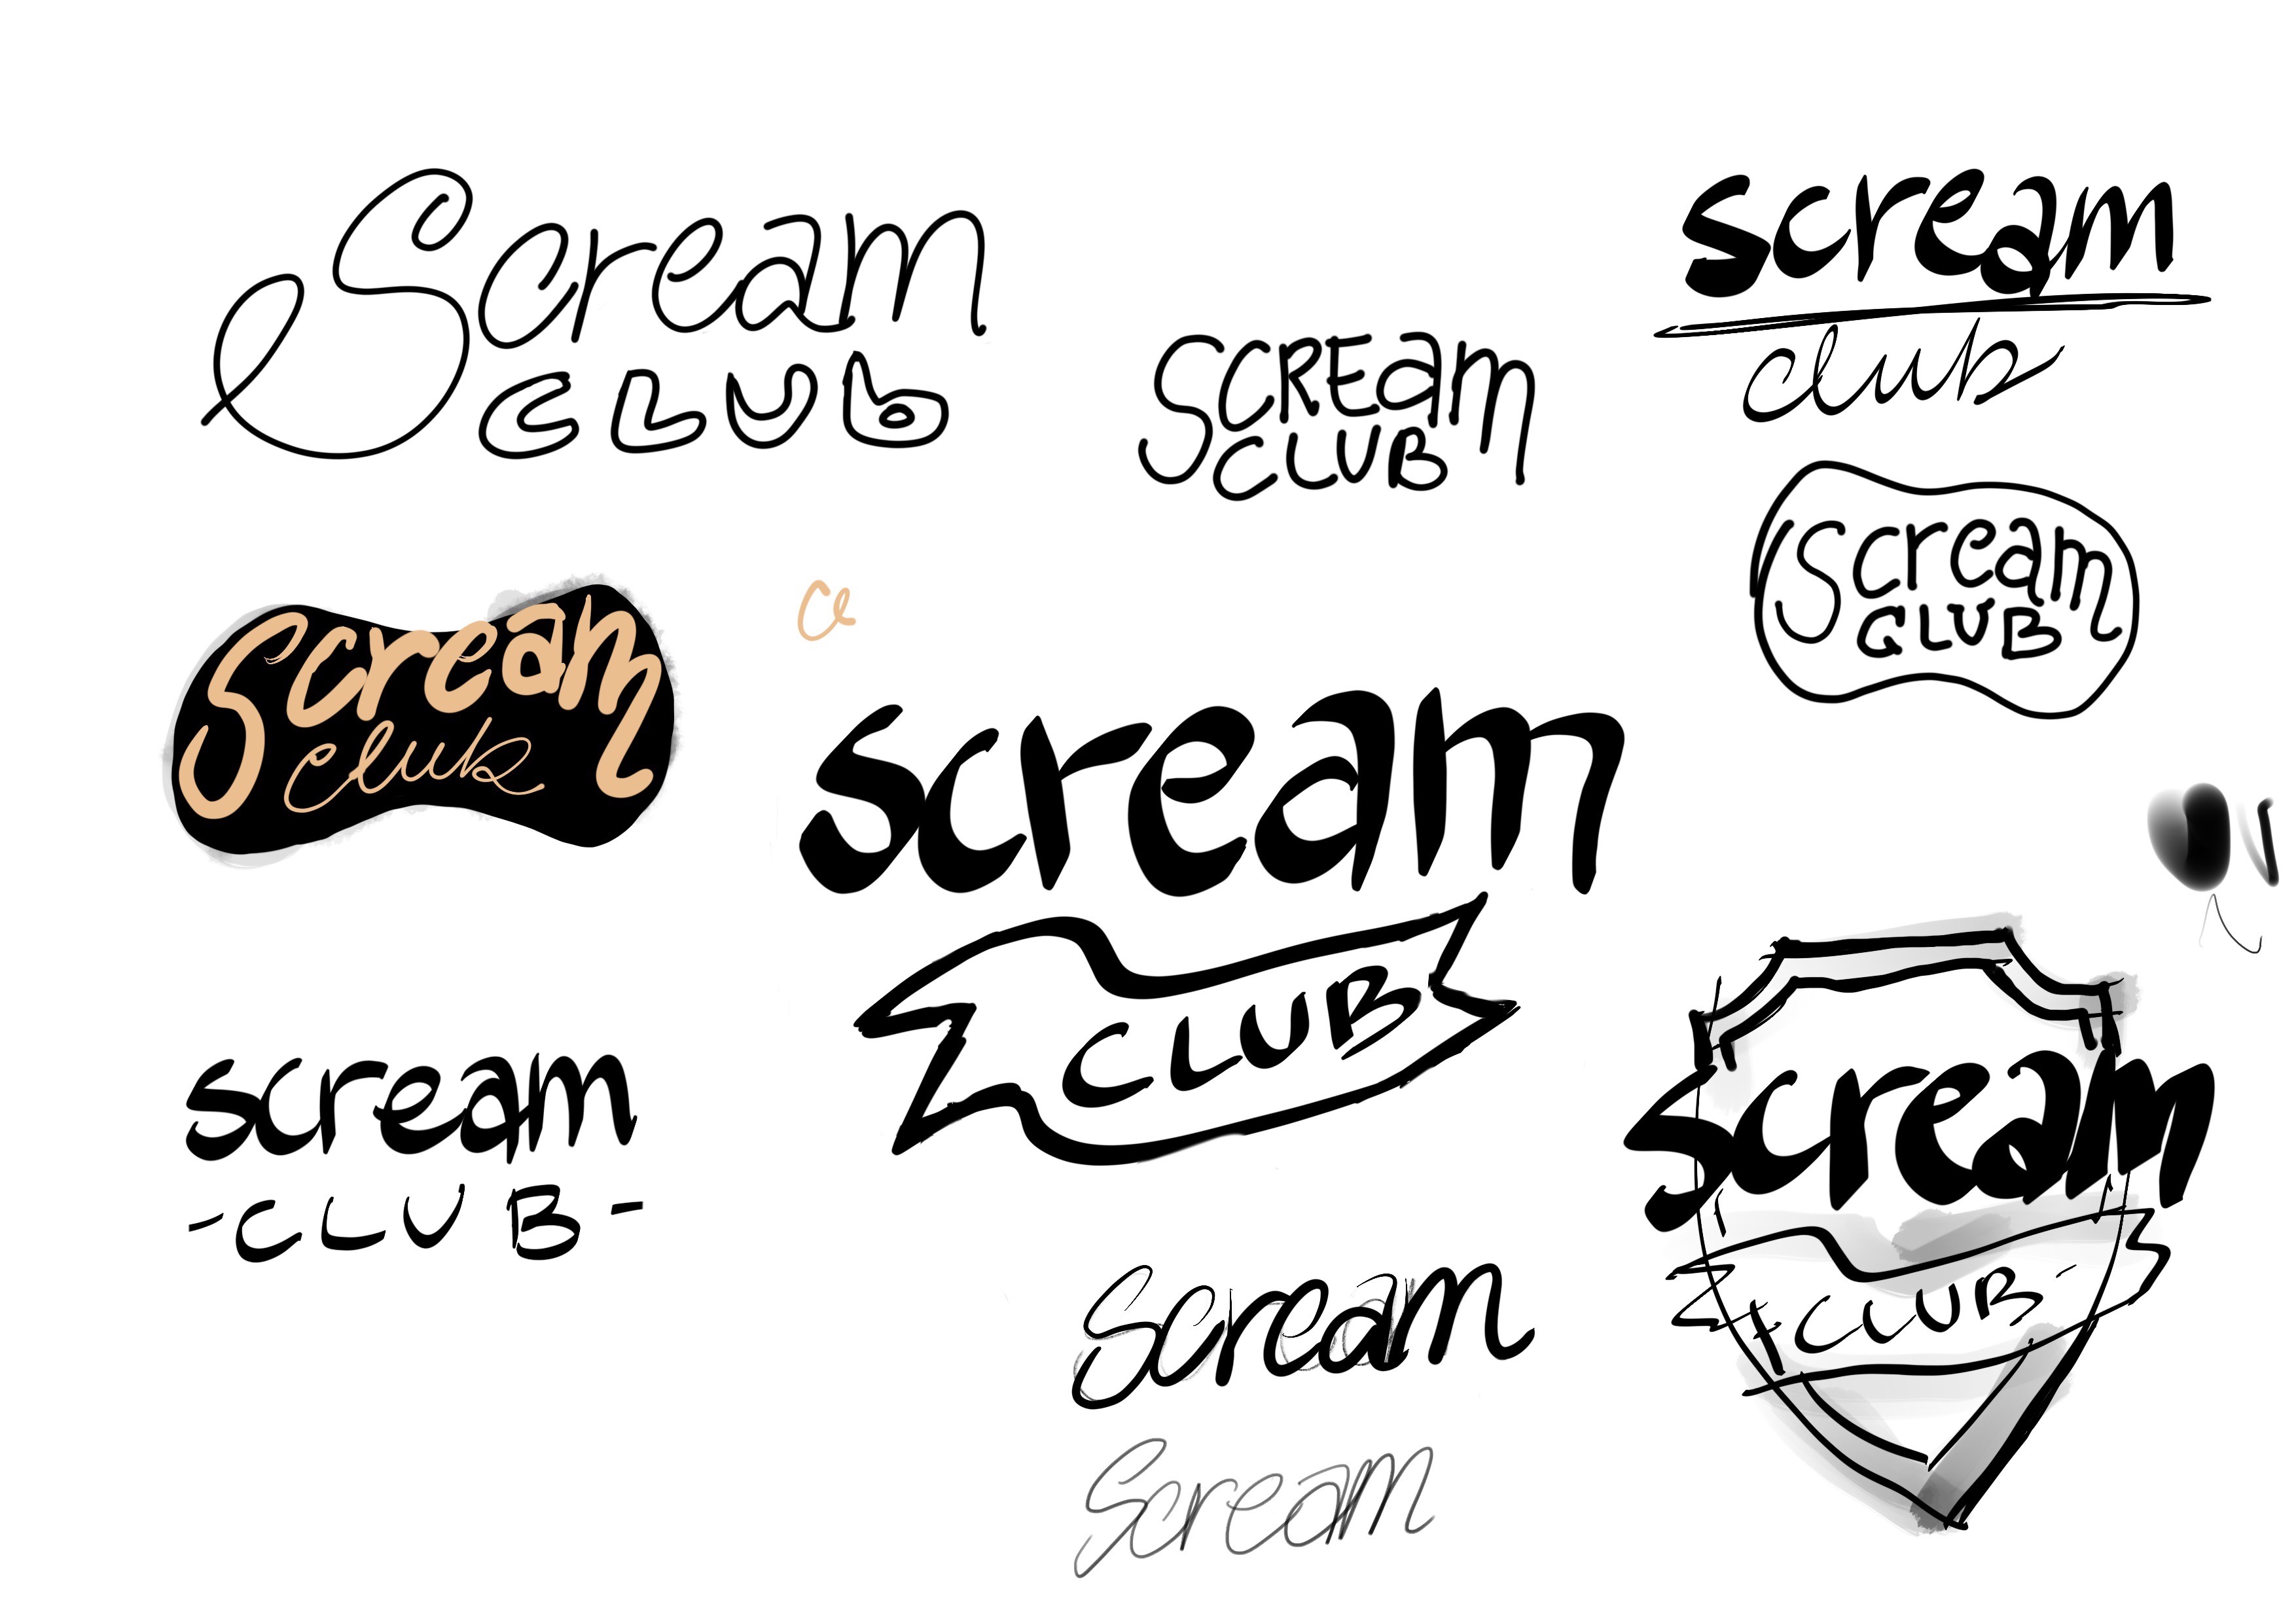 Scream
CLUb
SCREam
CLUB
scream
club
Scream
CLUB
Scream
club
ce
scream
CLUB
scream
-CLUB-
scream
CLUB
Scream
Scream